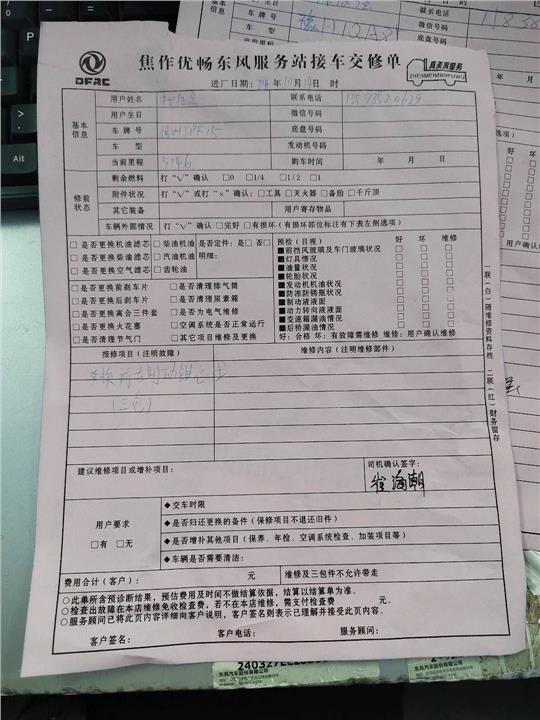 DFAC
焦作优畅东风服务站接车交修单
真美满服务
ZHENMEIMANFUWU
进厂日期: 年 10 月 14 日 时
基本信息
用户姓名 联系电话
用户生日 微信号码
车牌号 底盘号码
车型 发动机号码
当前里程 5146 购车时间 年 月 日
修前状态
剩余燃料 打“√”确认 □0 □1/4 □1/2 □1
附件状况 打“√”或打“×”确认:□工具 □灭火器 □备胎 □千斤顶
其它装备 用户寄存物品
车辆外部情况 打“√”确认 □完好 □有损坏(有损坏部位标注有下表左侧选项)
□是否更换机油滤芯 □柴油机油 是否定件:是□ 否□
□是否更换柴油滤芯 □汽油机油 明细:
□是否更换空气滤芯 □齿轮油
□是否更换前刹车片 □是否清理排气筒
□是否更换后刹车片 □是否清理尿素箱
□是否更换离合三件套 □是否为电气维修
□是否更换火花塞 □空调系统是否正常运行
□是否清理节气门 □其它项目维修及更换
预检(目视) 好 坏 维修
■前挡风玻璃及车门玻璃状况 □ □ □
■灯具情况 □ □ □
■油量状况 □ □ □
■轮胎状况 □ □ □
■发动机机油状况 □ □ □
■防冻防锈瓶状况 □ □ □
■制动液液面 □ □ □
■动力转向液液面 □ □ □
■变速箱漏油情况 □ □ □
■后桥漏油情况 □ □ □
好:合格 坏:有故障需维修 维修:用户确认维修
报修项目(注明故障) 维修内容(注明维修部件)
(三包)
建议维修项目或增补项目:
司机确认签字:
用户要求
□有 □无
◆交车时限
◆是否归还更换的备件(保修项目不退还旧件)
◆是否增补其他项目(保养、年检、空调系统检查、加装项目等)
◆车辆是否需要清洁:
费用合计(客户): 元 维修及三包件不允许带走
○此单所含预诊断结果,预估费用及时间不做结算依据,结算以结算单为准。
○检查出故障在本店维修免收检查费,若不在本店维修,需支付检查费 元。
○服务顾问已将此页内容详细向客户说明,客户签名则表示已理解并接受此页内容。
客户签名: 客户电话: 服务顾问:
联(白)随维修资料存档 二联(红)财务留存
联系电话
微信号码
底盘号码
车牌号
车型
Alt